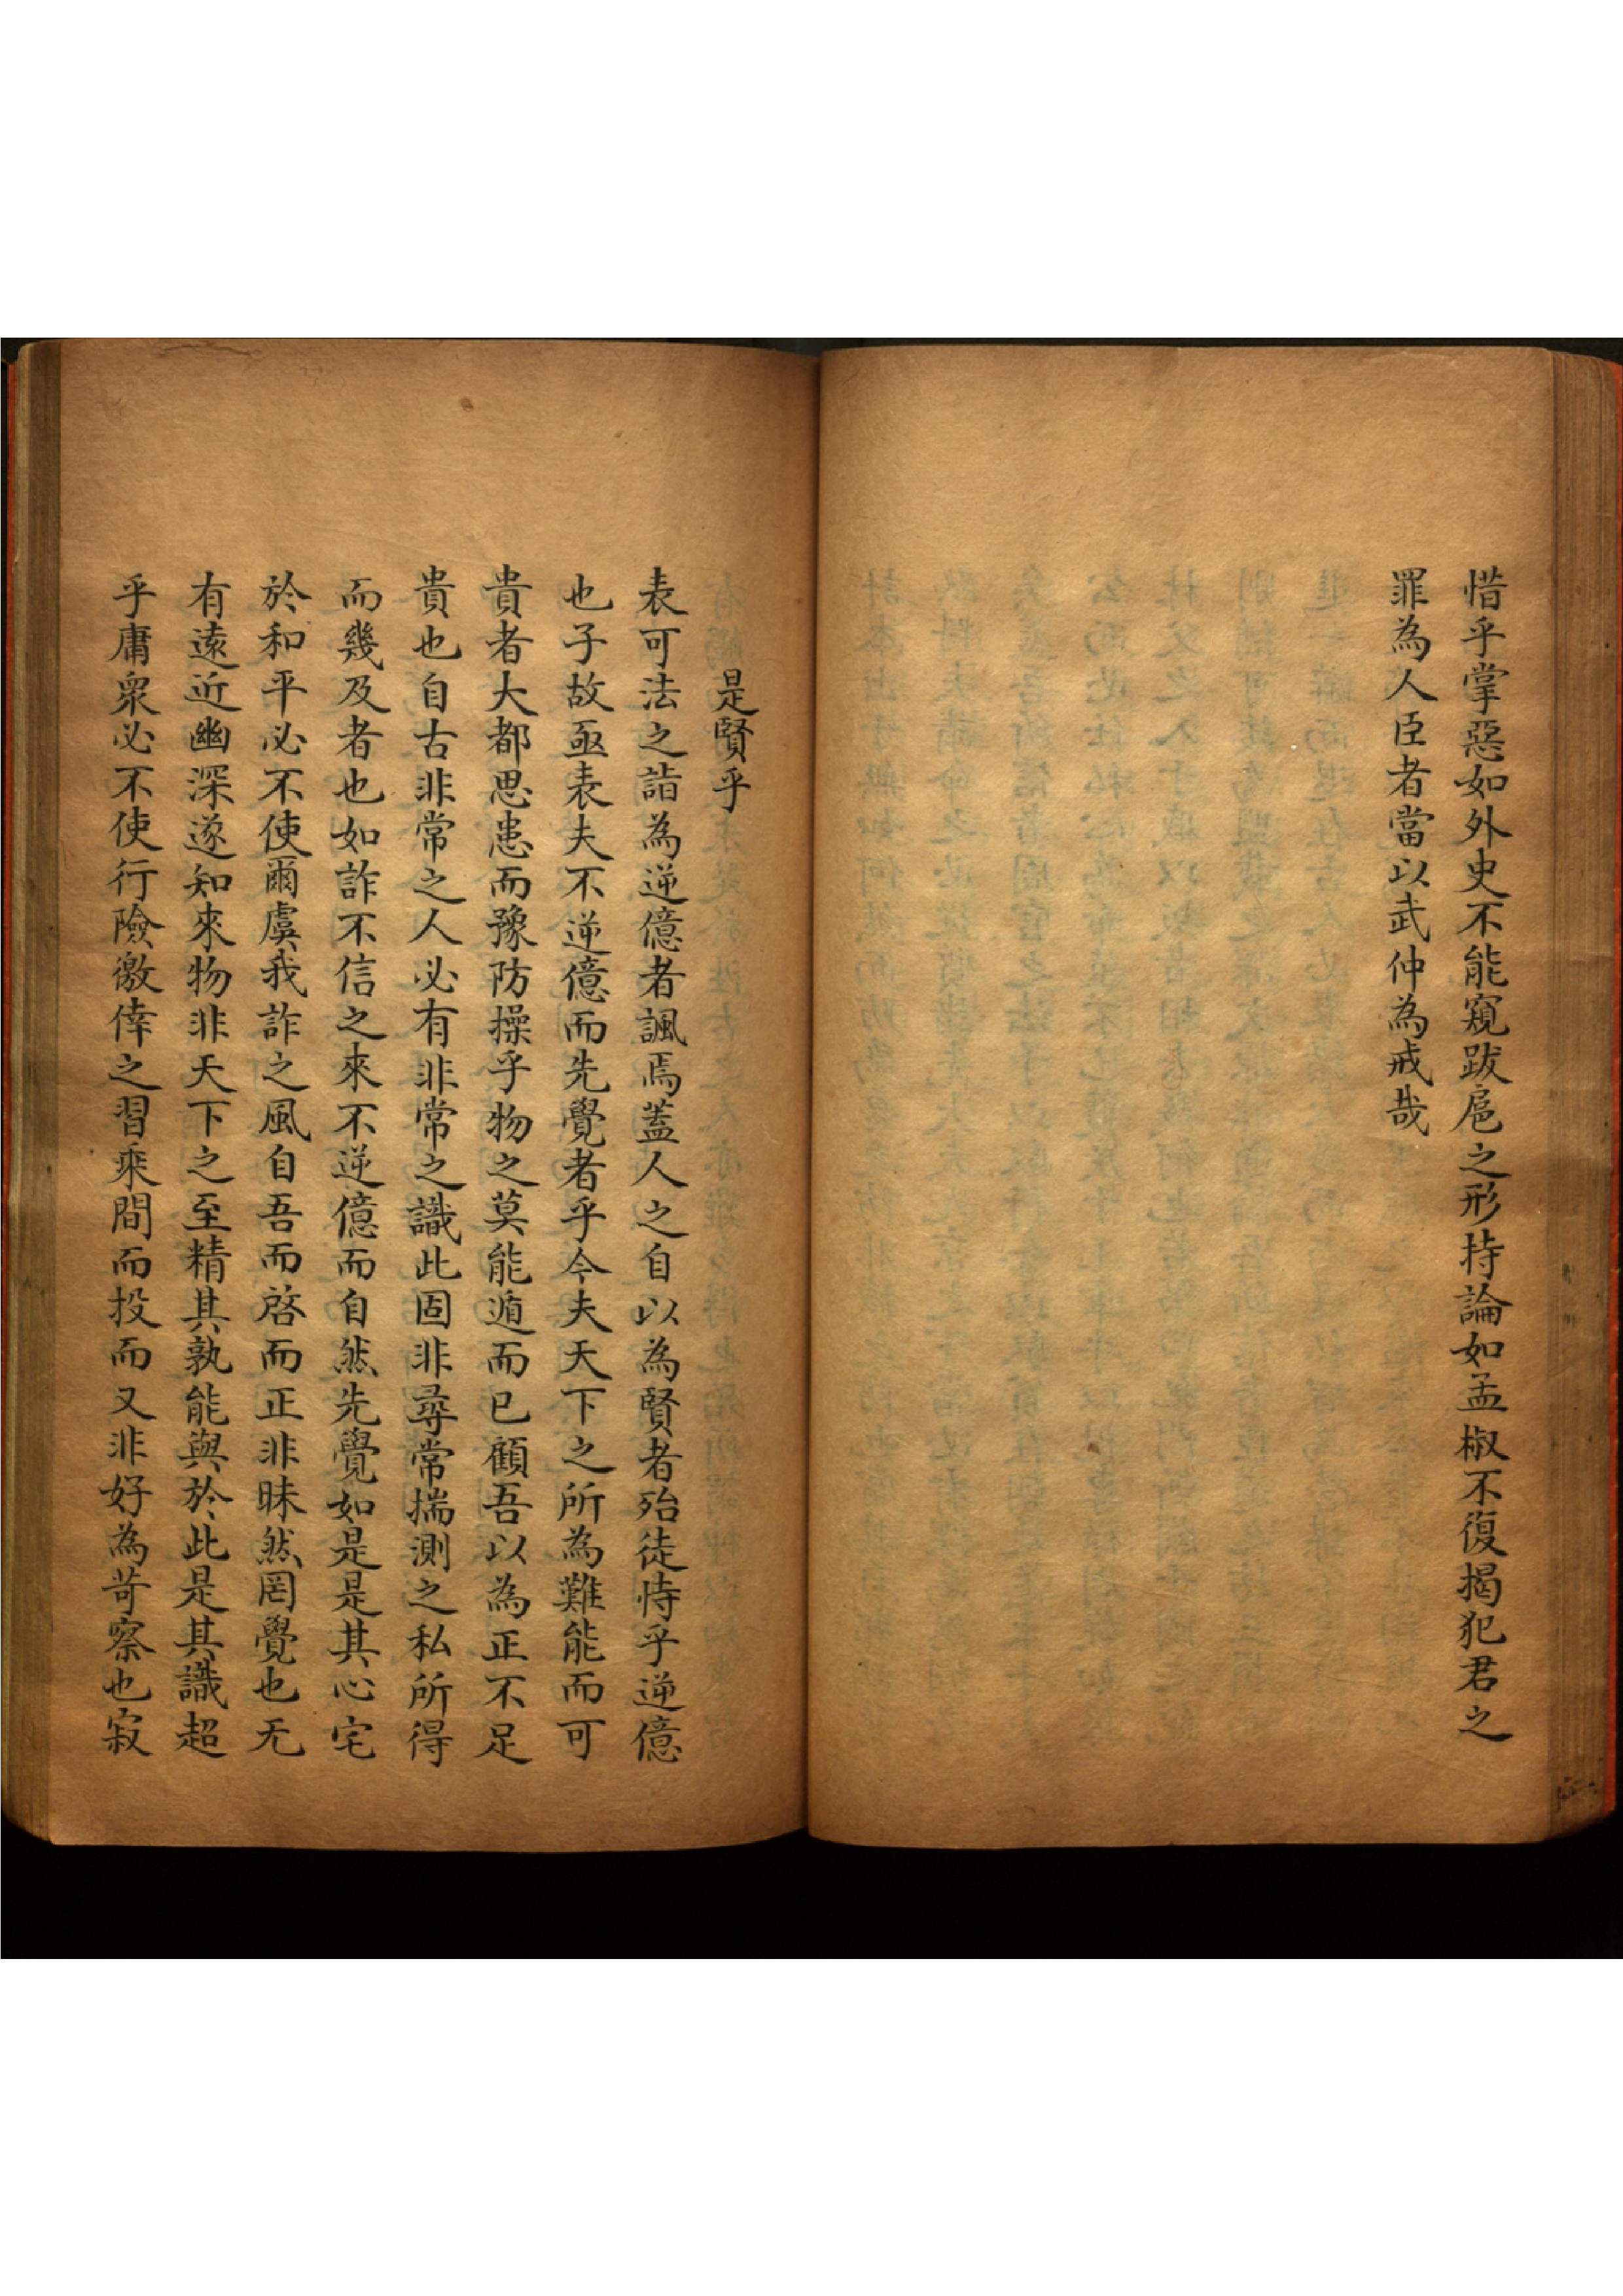 惜乎掌惡如外史不能窺跋扈之形持論如孟椒不復揭犯君之
罪為人臣者當以武仲為戒哉
是賢乎
表可法之詣為逆億者諷焉蓋人之自以為賢者殆徒恃乎逆億
也子故亟表夫不逆億而先覺者乎今夫天下之所為難能而可
貴者大都思患而豫防操乎物之莫能遁而已顧吾以為正不足
貴也自古非常之人必有非常之識此固非尋常揣測之私所得
而幾及者也如詐不信之來不逆億而自然先覺如是是其心宅
於和平必不使爾虞我詐之風自吾而啓而正非昧然罔覺也无
有遠近幽深遂知來物非天下之至精其孰能與於此是其識超
乎庸衆必不使行險徼倖之習乘間而投而又非好為苛察也寂